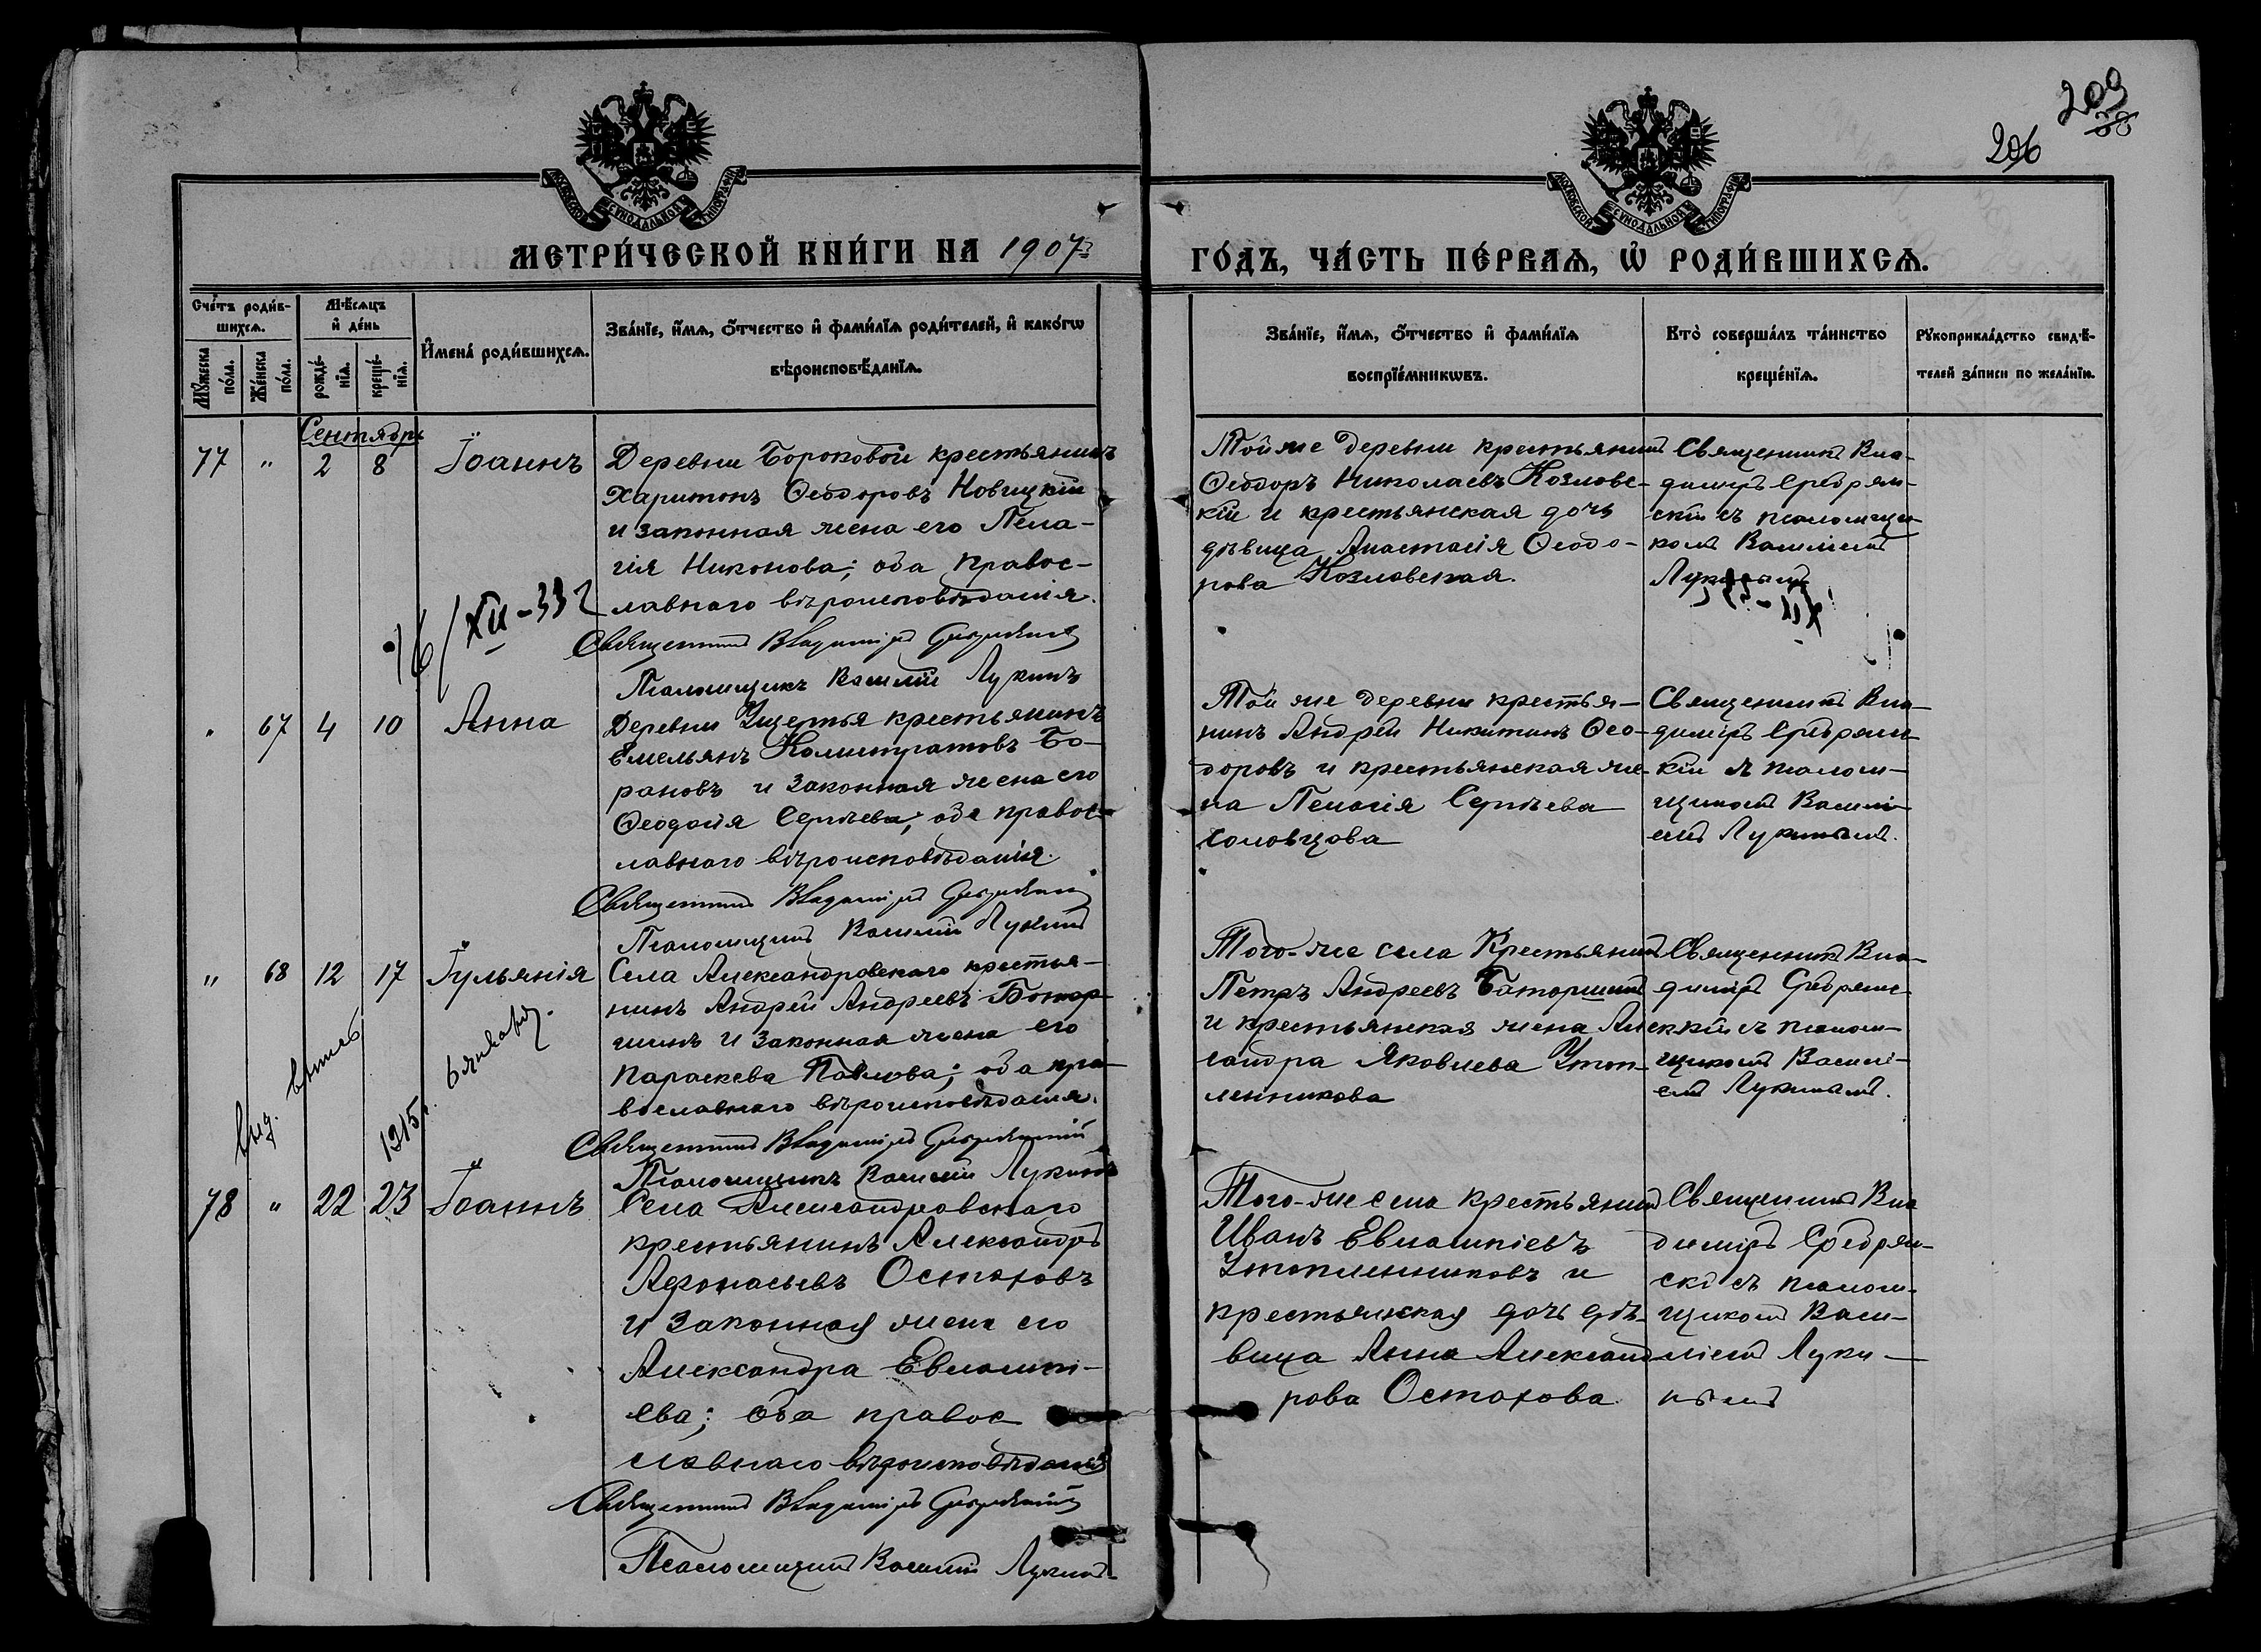 209
38
206
МОСКОВСКОЙ СѴНОДАЛЬНОЙ ТИПОГРАФІИ
МОСКОВСКОЙ СѴНОДАЛЬНОЙ ТИПОГРАФІИ
МЕТРИ́ЧЕСКОЙ КНИ́ГИ НА 1907й
ГО́ДЪ, ЧА́СТЬ ПЕ́РВАѦ, Ѡ҆ РОДИ́ВШИХСѦ.
Сче́тъ роди́в-
шихсѧ.
Мꙋ́жеска по́ла.
Же́нска по́ла.
Мѣ́сѧцъ
и҆ де́нь
рожде́-
нїѧ.
креще́-
нїѧ.
И҆мена̀ роди́вшихсѧ.
Зва́нїе, и҆́мѧ, ѻ҆́тчество и҆ фами́лїѧ роди́телей, и҆ како́гѡ
вѣроисповѣ́данїѧ.
Зва́нїе, и҆́мѧ, ѻ҆́тчество и҆ фами́лїѧ
воспрїе́мникѡвъ.
Кто̀ соверша́лъ та́инство
креще́нїѧ.
Рꙋкоприкла́дство свидѣ́-
телей за́писи по жела́нїю.
Сентябрь
77 " 2 8 Іоаннъ
Деревни Бороковой крестьянинъ
Харитонъ Ѳеодоровъ Новицкій
и законная жена его Пела-
гія Никонова; оба правос-
лавнаго вѣроисповѣданія.
Священникъ Владиміръ Сребрянскій
Псаломщикъ Василій Лукинъ
Той же деревни крестьянинъ
Ѳеодоръ Николаевъ Козловс-
кій и крестьянская дочь
дѣвица Анастасія Ѳеодо-
рова Козловская.
Священникъ Вла-
диміръ Сребрян-
скій съ псаломщи-
комъ Василіемъ
Лукинымъ
16/XII-33 г
" 67 4 10 Анна
Деревни Ущертья крестьянинъ
Емельянъ Калистратовъ Бо-
рановъ и законная жена его
Ѳеодосія Сергѣева; оба правос-
лавнаго вѣроисповѣданія.
Священникъ Владиміръ Сребрянскій
Псаломщикъ Василій Лукинъ
Той же деревни крестья-
нинъ Андрей Никитинъ Ѳео-
доровъ и крестьянская же-
на Пелагія Сергѣева
Соловцова
Священникъ Вла-
диміръ Сребрянс-
кій съ псалом-
щикомъ Василі-
емъ Лукинымъ.
" 68 12 17 Іульянія
Села Александровскаго крестья-
нинъ Андрей Андреевъ Батор-
шинъ и законная жена его
Параскева Павлова; оба пра-
вославнаго вѣроисповѣданія.
Священникъ Владиміръ Сребрянскій
Псаломщикъ Василій Лукинъ
Того-же села Крестьянинъ
Петръ Андреевъ Баторшинъ
и крестьянская жена Алек-
сандра Яковлева Утоп-
ленникова
Священникъ Вла-
диміръ Сребрянс-
кій съ псалом-
щикомъ Василі-
емъ Лукинымъ.
Выд. выпись 1915 г. 6 января.
78 " 22 23 Іоаннъ
Села Александровскаго
крестьянинъ Александръ
Афонасьевъ Остаховъ
и законная жена его
Александра Евлампі-
ева; оба правос
славнаго вѣроисповѣданія
Священникъ Владиміръ Сребрянскій
Псаломщикъ Василій Лукинъ
Того-же села крестьянинъ
Иванъ Евлампіевъ
Утопленниковъ и
крестьянская дочь дѣ-
вица Анна Александ
рова Остахова
Священникъ Вла
диміръ Сребрян-
скій съ псалом-
щикомъ Васи-
ліемъ Луки-
нымъ